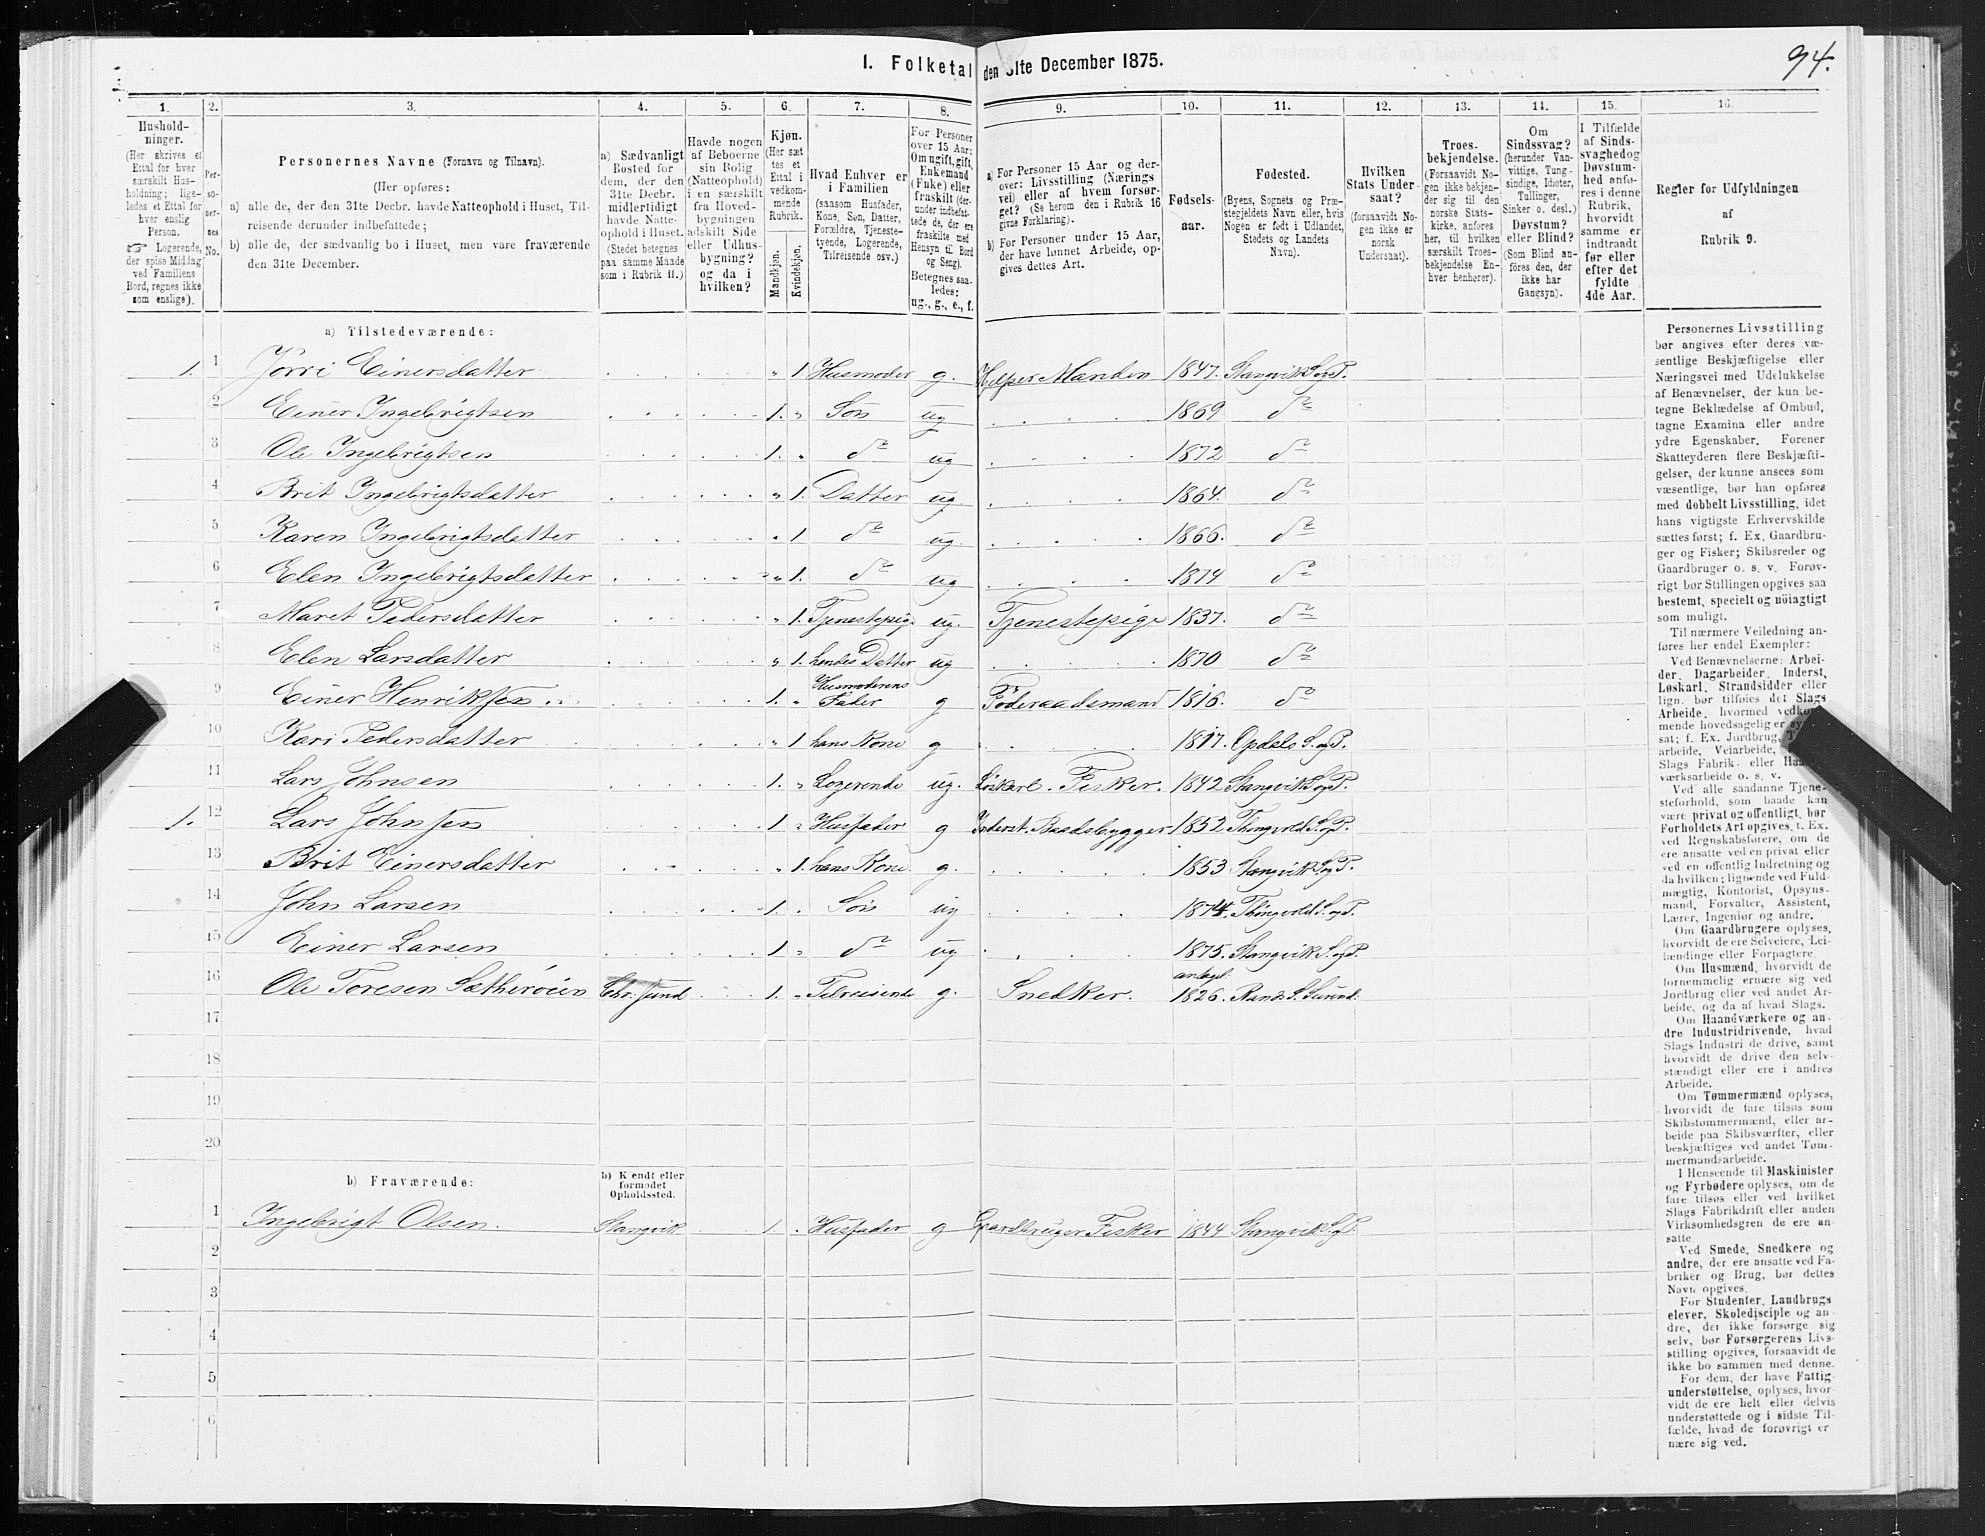 94.
1. Folketal den 31te December 1875.
1. 2. 3. 4. 5. 6. 7. 8. 9. 10. 11. 12. 13. 14. 15. 16.
Hushold-
ninger.
(Her skrives et
Ettal for hver
særskilt Hus-
holdning; lige-
ledes et Ettal for
hver enslig
Person.
☞ Logerende,
der spise Middag
ved Familiens
Bord, regnes ikke
som enslige).
Per-
so-
ner-
nes
No.
Personernes Navne (Fornavn og Tilnavn).
(Her opføres:
a) alle de, der den 31te Decbr. havde Natteophold i Huset, Til-
reisende derunder indbefattede;
b) alle de, der sædvanlig bo i Huset, men vare fraværende
den 31te December.
a) Sædvanligt
Bosted for
dem, der den
31te Decbr.
midlertidigt
havde Natte-
ophold i Huset.
(Stedet betegnes
paa samme Maade
som i Rubrik 11.)
Havde nogen
af Beboerne
sin Bolig
(Natteophold)
i en særskilt
fra Hoved-
bygningen
adskilt Side
eller Udhus-
bygning?
og da i
hvilken?
Kjøn.
(Her sæt
tes et
Ettal i
vedkom-
mende
Rubrik.
Mandkjøn.
Kvindekjøn.
Hvad Enhver er
i Familien
(saasom Husfader,
Kone, Søn, Datter,
Forældre, Tjeneste-
tyende, Logerende,
Tilreisende osv.)
For Personer
over 15 Aar:
Om ugift, gift,
Enkemand
(Fuke) eller
fraskilt (der-
under indbefat-
tede de, der ere
fraskilte med
Hensyn til Bord
og Seng).
Betegnes saa-
ledes:
ug., g., e., f.
a) For Personer 15 Aar og der-
over: Livsstilling (Nærings
vei) eller af hvem forsør-
get? (Se herom den i Rubrik 16
givne Forklaring).
b) For Personer under 15 Aar,
der have lønnet Arbeide, op-
gives dettes Art.
Fødsels-
aar.
Fødested.
(Byens, Sognets og Præ-
stegjeldets Navn eller, hvis
Nogen er født i Udlandet,
Stedets og Landets
Navn).
Hvilken
Stats Under-
saat?
(forsaavidt No-
gen ikke er
norsk
Undersaat).
Troes-
bekjendelse.
(Forsaavidt No-
gen ikke bekjen-
der sig til den
norske Stats-
kirke, anføres
her, til hvilken
særskilt Troes-
bekjendelse En-
hver henhører).
Om
Sindssvag?
(herunder Van-
vittige, Tung-
sindige, Idioter,
Tullinger,
Sinker o. desl.)
Døvstum?
eller Blind?
(Som Blind an-
føres den, der
ikke har
Gangsyn).
I Tilfælde
af Sinds-
svaghed og
Døvstum-
hed anfø-
res i denne
Rubrik,
hvorvidt
samme er
indtraadt
før eller
efter det
fyldte
4de Aar.
Regler for Udfyldningen
af
Rubrik 9.
a) Tilstedeværende:
1. 1 Einersdatter " 1. Husmoder g. Hjelper Manden 1847. Stangvik S. og P.
2 Einer Ingebrigtsen 1. " Søn ug 1869 do
3 Ole Ingebrigtsen 1. " do ug 1872 do
4 Brit Ingebrigtsdatter " 1. Datter ug 1864. do
5 Karen Ingebrigtsdatter " 1 do ug. 1866. do
6 Elen Ingebrigtsdatter " 1. do ug 1874 do
7 Maret Pedersdatter " 1. Tjenestepige ug. Tjenestepige 1837. do
8 Elen Larsdatter " 1. hendes Datter ug 1870 do
9 Einer Henriksen 1. " Husmoderens Fader g Føderaadsmand 1816. do
10 Kari Pedersdatter " 1 hans Kone g 1817. Opdals S. og P.
11 Lars Johnsen 1. " Logerende ug. Løskarl. Fisker. 1842 Stangvik S. og P.
1. 12 Lars Johnsen 1 " Husfader g Inderst. Baadsbygger 1852 Thingvold S. og P.
13 Brit Einersdatter " 1. hans Kone g. 1853 Stangvik S. og P.
14 John Larsen 1. " Søn ug 1874. Thingvold S. og P.
15 Einer Larsen 1 " do ug 1875. Stangvik S. og P.
16 Ole Toresen Sætherøien Chr. sund 1. " Tilreisende g. Snedker. antagl. 1826. Rands S. Surend.
17
18
19
20
b) Fraværende:
b) Kendt eller
formodet
Opholdssted.
1 Ingebrigt Olsen. Stangvik 1. " Husfader g Gaardbruger Fisker 1844 Stangvik S. og P.
2
3
4
5
6
Personernes Livsstilling
bør angives efter deres væ-
sentlige Beskjæftigelse eller
Næringsvei med Udelukkelse
af Benævnelser, der kun be-
tegne Beklædelse af Ombud,
tagne Examina eller andre
ydre Egenskaber. Forener
Skatteyderen flere Beskjæfti-
gelser, der kunne ansees som
væsentlige, bør han opføres
med dobbelt Livsstilling, idet
hans vigtigste Erhvervskilde
sættes først; f. Ex. Gaardbru-
ger og Fisker; Skibsreder og
Gaardbruger o. s. v. Forøv-
rigt bør Stillingen opgives saa
bestemt, specielt og nöiagtigt
som muligt.
Til nærmere Veiledning an-
føres her endel Exempler:
Ved Benævnelserne: Arbei-
der, Dagarbeider, Inderst,
Løskarl, Strandsidder eller
lign. bør tilføies det Slags
Arbeide, hvormed vedkom-
mende hovedsagelig er sys
sat; f. Ex. Jordbrug,
arbeide, Veiarbeide,
Slags Fabrik- eller
værksarbeide o. s. v.
Ved alle saadanne Tjene-
steforhold, som baade kan
være privat og offentligt, bør
Forholdets Art opgives, t. Ex.
ved Regnskabsførere, om de
ere ansatte ved en privat eller
ved en offentlig Indretning og
da hvilken; lignende ved Fuld-
mægtig, Kontorist, Opsyns-
mand, Forvalter, Assistent,
Lærer, Ingeniør og andre.
Om Gaardbrugere oplyses,
hvorvidt de ere Selveiere, Lei-
lændinge eller Forpagtere.
Om Husmænd, hvorvidt de
fornemmelig ernære sig ved
Jordbrug eller ved andet Ar-
beide, og da af hvad Slags.
Om Haandværkere og an-
dre Industridrivende, hvad
Slags Industri de drive, samt
hvorvidt de drive den selv-
stændigt eller ere i andres
Arbeide.
Om Tømmermænd oplyses,
hvorvidt de fare tilsøs som
Skibstømmermænd, eller ar-
beide paa Skibsværfter, eller
beskjæftiges ved andet Tøm-
mermandsarbeide.
I Henseende til Maskinister
og Fyrbødere oplyses, om de
fare tilsøs eller ved hvilket
Slags Fabrikdrift eller anden
Virksomhedsgren de ere an-
satte.
Ved Smede, Snedkere og
andre, der ere ansatte ved Fa-
briker og Brug, bør dettes
Navn opgives.
For Studenter, Landbrugs
elever, Skoledisciple og an-
dre, der ikke forsørge sig
selv, bør Forsørgerens Livs-
stilling opgives, forsaavidt de
ikke bo sammen med denne.
For dem, der have Fattig-
understøttelse, oplyses, hvor-
vidt de ere helt eller delvis
understøttede og i sidste Til-
fælde, hvad de forøvrigt er
nære sig ved.